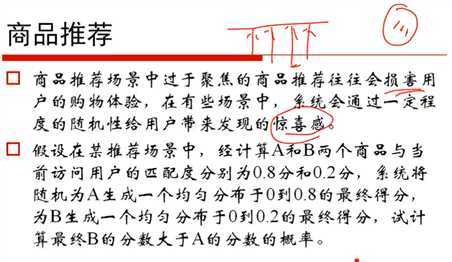 商品推荐
商品推荐场景中过于聚焦的商品推荐往往会损害用
户的购物体验，在有些场景中，系统会通过一定程
度的随机性给用户带来发现的惊喜感。
假设在某推荐场景中，经计算A和B两个商品与当
前访问用户的匹配度分别为0.8分和0.2分，系统将
随机为A生成一个均匀分布于0到0.8的最终得分，
为B生成一个均匀分布于0到0.2的最终得分，试计
算最终B的分数大于A的分数的概率。